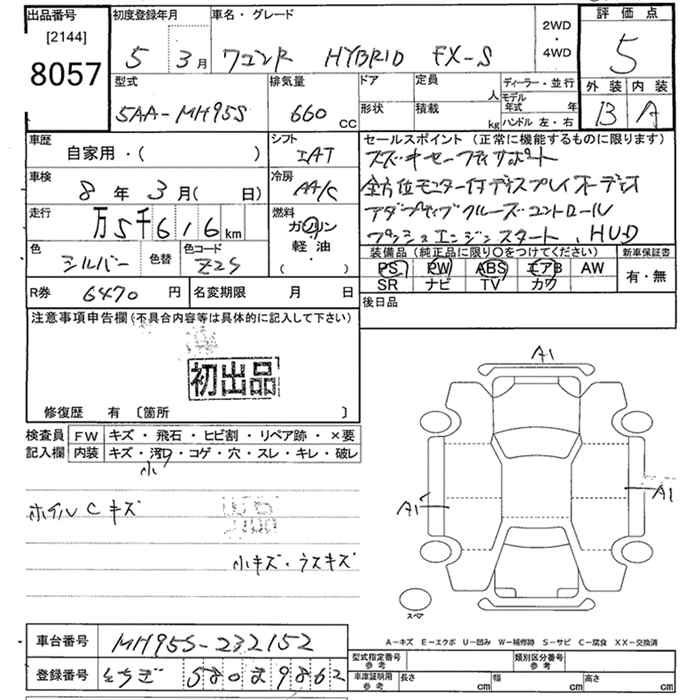 出品番号
[2144]
8057
初度登録年月
5 3月
車名・グレード
ワゴンR HYBRID FX-S
2WD
・
4WD
評価点
5
外装 内装
B A
型式
5AA-MH95S
排気量
660 CC
ドア
形状
定員 人
積載 kg
ディーラー・並行
モデル年式 年
ハンドル 左・右
車歴
自家用・( )
シフト
IAT
車検
8年3月( 日)
冷房
AA/C
走行
万5千616km
燃料
ガソリン
軽油・
( ・ )
色
シルバー
色替
色コード
Z2S
R券 6470円
名変期限 月 日
セールスポイント (正常に機能するものに限ります)
スズキセーフティサポート
全方位モニター付ディスプレイオーディオ
アダプティブクルーズコントロール
プッシュエンジンスタート、HUD
装備品(純正品に限り○をつけてください)
PS PW ABS エアB AW
SR ナビ TV カワ
新車保証書
有・無
後日品
注意事項申告欄(不具合内容等は具体的に記入して下さい)
初出品
修復歴 有 〔箇所 〕
検査員
記入欄
FW キズ・飛石・ヒビ割・リペア跡・×要
内装 キズ・汚・コゲ・穴・スレ・キレ・破レ
小
ホイルCキズ
小キズ・ウスキズ
A1
A1
A1
スペア
A-キズ E-エクボ U-凹み W-補修跡 S-サビ C-腐食 XX-交換済
車台番号 MH95S-232152
登録番号 とちぎ 580ま9862
型式指定番号
参考
類別区分番号
参考
車庫証明用
参考
長さ cm
幅 cm
高さ cm